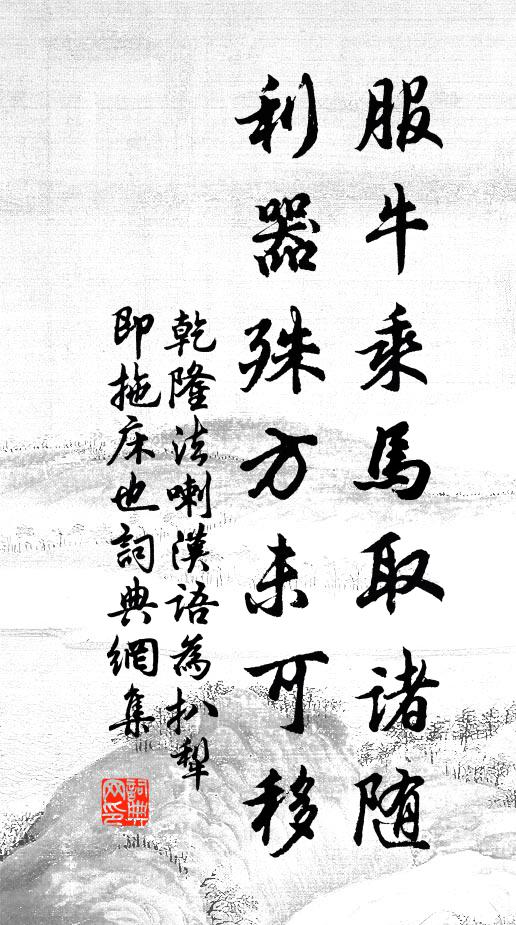 服牛乘馬取诸随
利器殊方未可移
乾隆法喇漢語為扒犁
即拖床也詞典網集
詞典网印